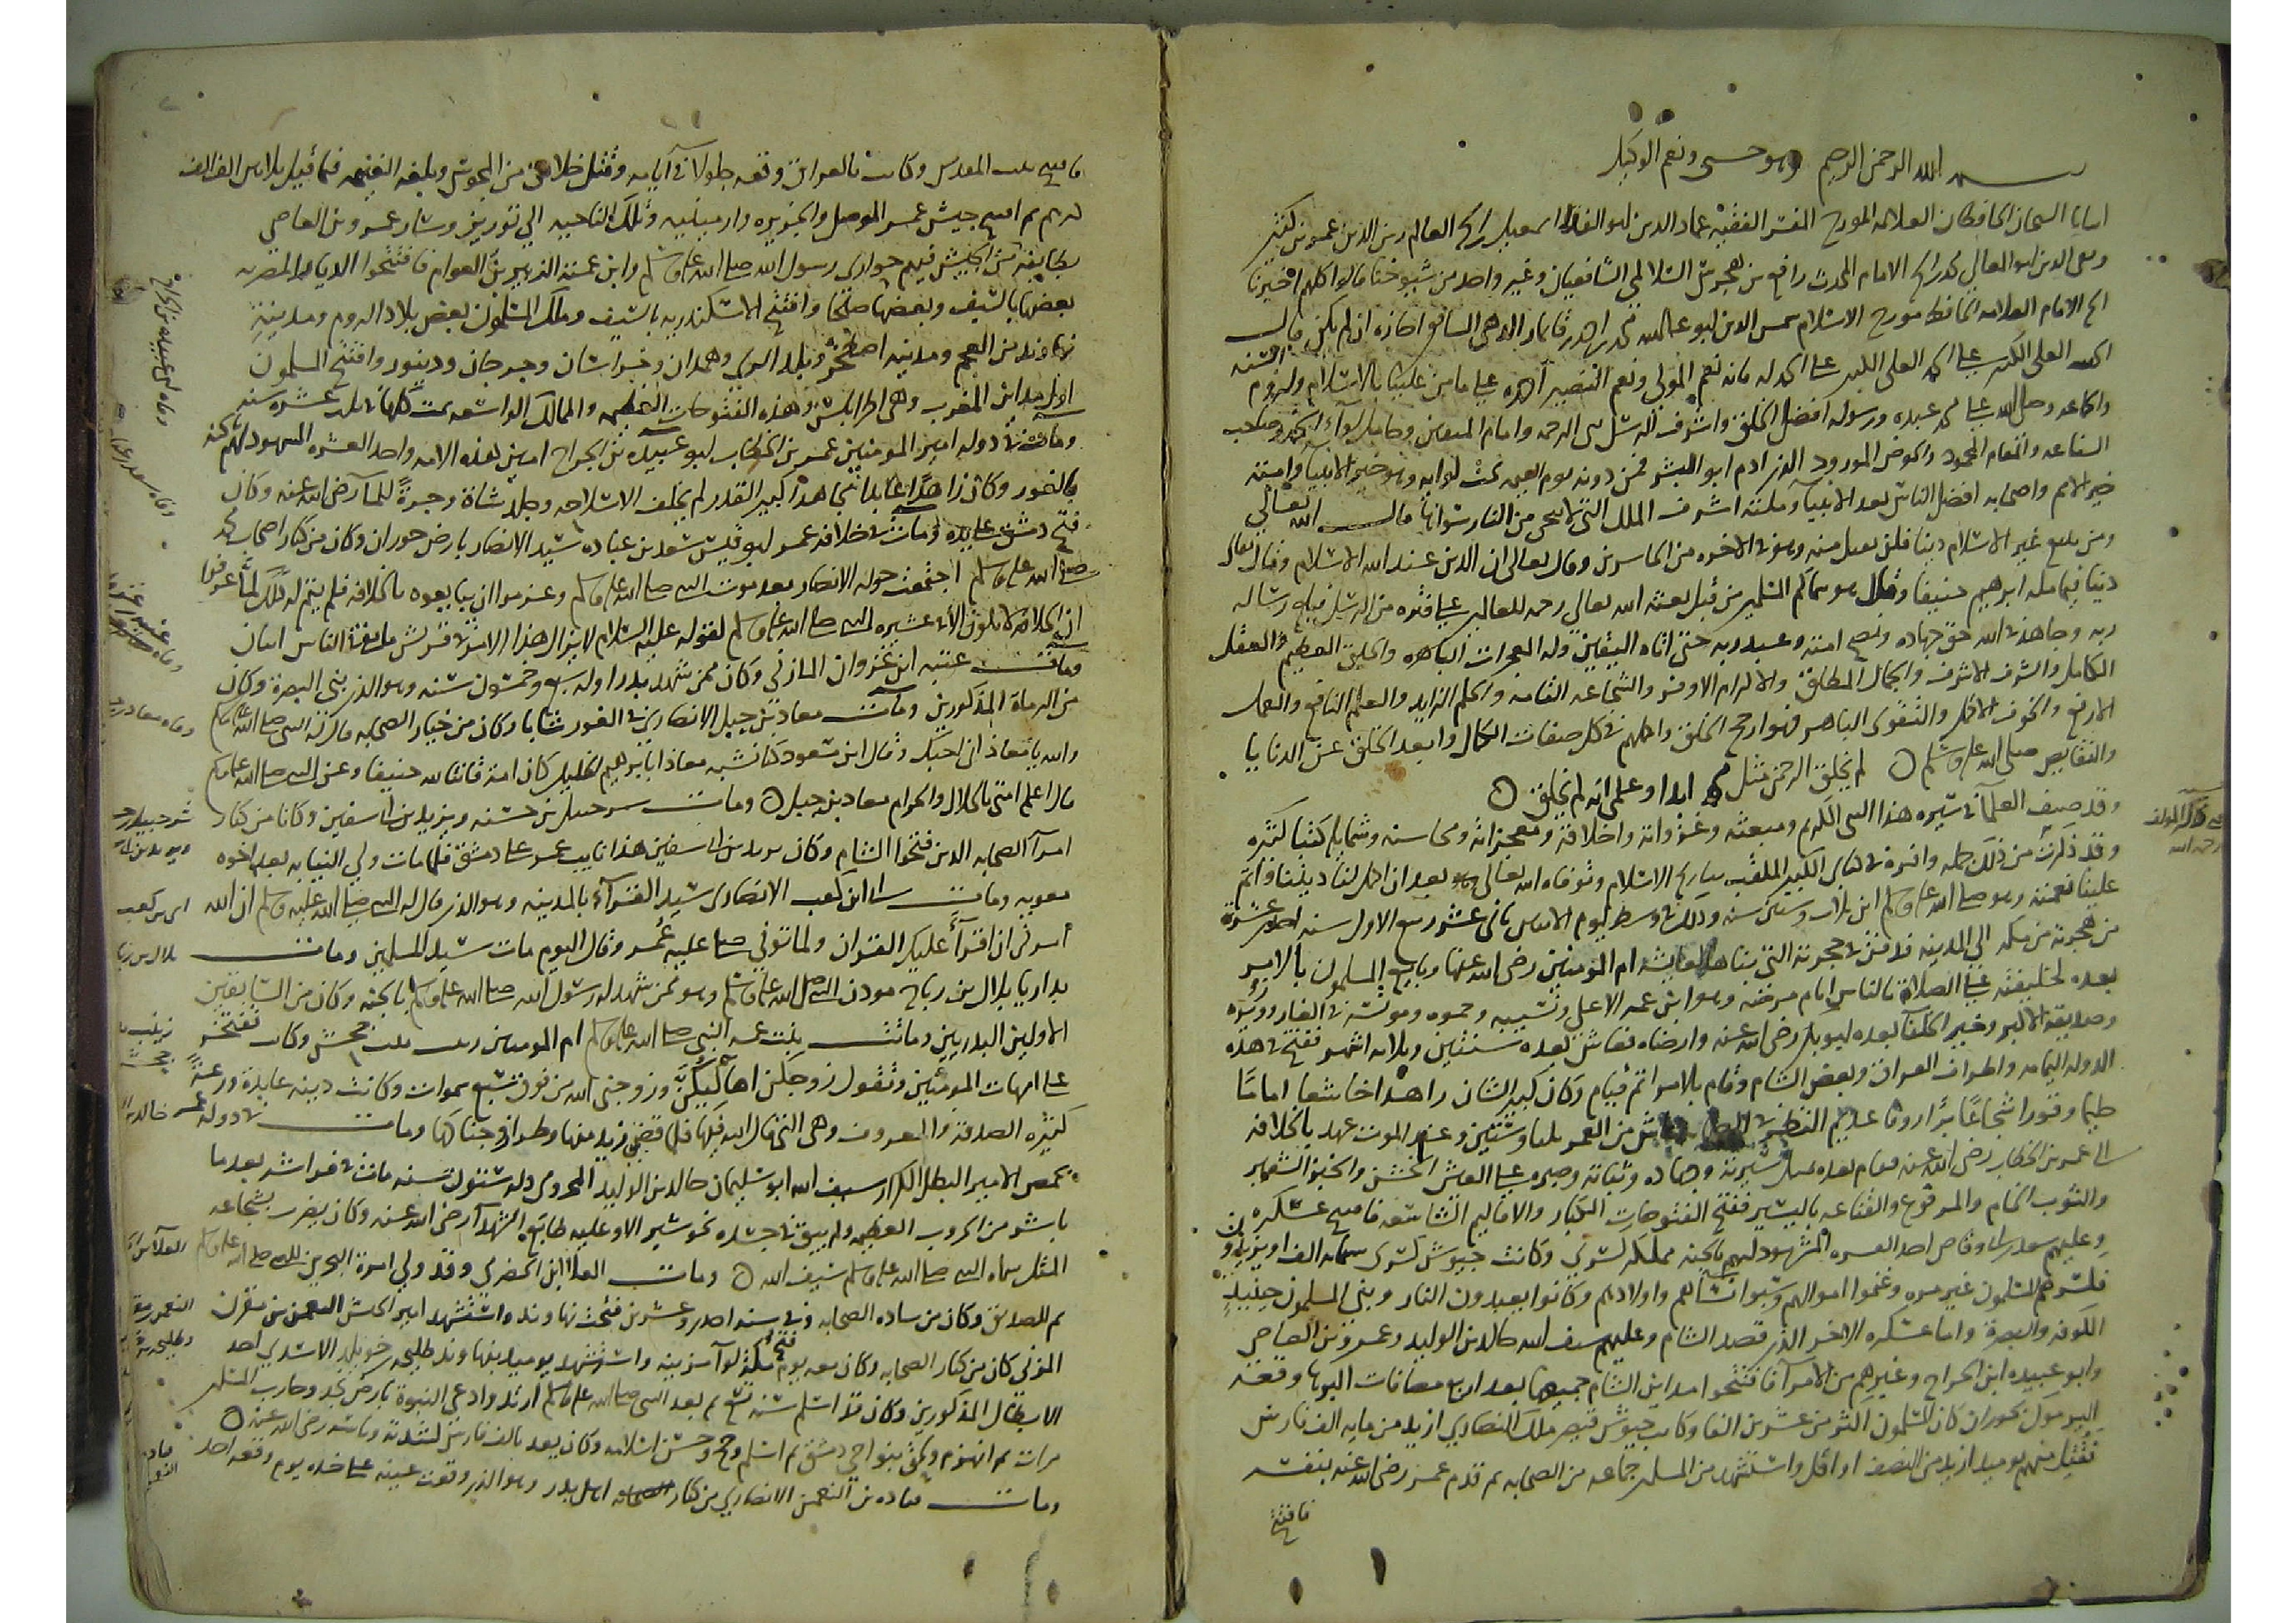 بسم الله الرحمن الرحيم وهو حسبي ونعم الوكيل
الحافظان العلامه المورخ المفسر الفقيه عماد الدين ابو الفدا اسمعيل العالم زين الدين عمر بن كثير
وتقي الدين ابو المعالي محمد الامام المحدث رافع بن هجرس السلامي الشافعيان وغير واحد من شيوخنا قالوا كلهم اخبرنا
الامام العلامه الحافظ مورخ الاسلام شمس الدين ابو عبد الله محمد بن احمد بن قايماز الذهبي اجازه ان لم يكن قال
الحمد لله العلي الكبير على الحمد لله فانه نعم المولى ونعم النصير احمده على ما من علينا بالاسلام ولزوم السنه
والجماعه وصلى الله على محمد عبده ورسوله افضل الخلق واشرف الرسل نبي الرحمه وامام المتقين وحامل لواء الحمد وصاحب
الشفاعه والمقام المحمود والحوض المورود الذي ادم ابو البشر فمن دونه يوم القيمه تحت لوايه وهو خير الانبيا وامته
خير الامم واصحابه افضل الناس بعد الانبيا وملته اشرف الملل التي لا ينجي من النار سواها قال الله تعالى
ومن يبتغ غير الاسلام دينا فلن يقبل منه وهو في الاخره من الخاسرين وقال تعالى ان الدين عند الله الاسلام وقال تعالى
دينا قيما مله ابرهيم حنيفا وقال هو سماكم المسلمين من قبل بعثه الله تعالى رحمه للعالمين على فتره من الرسل فبلغ رساله
ربه وجاهد في الله حق جهاده ونصح امته وعبد ربه حتى اتاه اليقين وله المعجزات الباهره والخلق العظيم والعقل
الكامل والشرف الاشرف والجمال المطلق والاكرام الاوفر والشجاعه التامه والحلم الزايد والعلم النافع والعمل
الارفع والخوف الاكمل والتقوى الباهر فهو ارجح الخلق واكملهم في كل صفات الكمال وابعد الخلق عن الدنايا
والنقايص صلى الله عليه وسلم لم يخلق الرحمن مثل محمد ابدا وعلمي انه لم يخلق
وقد صنف العلما في سيره هذا النبي الكريم ومبعثه وغزواته واخلاقه ومعجزاته ومحاسنه وشمايله كتبا كثيره
وقد ذكرت من ذلك جمله وافره في كتابي الكبير الملقب بتاريخ الاسلام وتوفاه الله تعالى بعد ان اكمل لنا ديننا واتم
علينا نعمته وهو صلى الله عليه وسلم ابن ثلاث وستين سنه وذلك في وسط يوم الاثنين ثاني عشر ربيع الاول سنه احدى عشره
من هجرته من مكه الى المدينه فدفن في حجرته التي بناها لعايشه ام المومنين رضي الله عنها وبايع المسلمون بالامر
بعده لخليفته على الصلاه بالناس ايام مرضه وهو ابن عمه الاعلى ونسيبه وحموه ومونسه في الغار ووزيره
وصديقه الاكبر وخير الخلق بعده ابو بكر رضي الله عنه وارضاه فعاش بعده سنتين وثلاثه اشهر ففتح في هذه
الدوله اليمامه واطراف العراق وبعض الشام وقام بالامر اتم قيام وكان كبير الشان زاهدا خاشعا اماما
حليما وقورا شجاعا صبارا روفا عديم النظير في الصحابه عاش من العمر ثلثا وستين وعند الموت عهد بالخلافه
الى عمر بن الخطاب رضي الله عنه فقام بعده بمثل سيرته وجهاده وثباته وصبره على العيش الخشن والخبز الشعير
والثوب الخام والمرقوع والقناعه باليسير ففتح الفتوحات الكبار والاقاليم الشاسعه فافتتح عسكره
وعليهم سعد بن ابي وقاص احد العشره المشهود لهم بالجنه مملكه كسرى وكانت جيوش كسرى مايه الف او يزيدون
فكسرهم المسلمون غير مره وغنموا اموالهم وسبوا نساهم واولادهم وكانوا يعبدون النار وبنى المسلمون حينيذ
الكوفه والبصره واما عسكره الاخر الذي قصد الشام وعليهم سيف الله خالد بن الوليد وعمرو بن العاص
وابو عبيده ابن الجراح وغيرهم من الامرا فافتتحوا مداين الشام جميعها بعد اربع مصافات اكبرها وقعه
اليرموك بحوران كان المسلمون اكثر من عشرين الفا وكانت جيوش قيصر ملك النصارى ازيد من مايه الف فارس
فقتل منهم يوميذ ازيد من النصف او اقل واستشهد من المسلمين جماعه من الصحابه ثم قدم عمر رضي الله عنه بنفسه
فافتتح
فافتتح بيت المقدس وكانت بالعراق وقعه جلولا في ايامه وقتل خلايق من المجوس وبلغت الغنيمه فيما قيل ثلاثين الف الف
درهم ثم افتتح جيش عمر الموصل والجزيره وارمينيه وتلك الناحيه الى توريز وسار عمرو بن العاص
بطايفه من الجيش فيهم حواري رسول الله صلى الله عليه وسلم وابن عمته الزبير بن العوام فافتتحوا الديار المصريه
بعضها بالسيف وبعضها صلحا وافتتح الاسكندريه بالسيف وملك المسلمون بعض بلاد الروم ومدينة
نهاوند من العجم ومدينه اصطخر وبلد الري وهمدان وخراسان وجرجان ودينور وافتتح المسلمون
اول مداين المغرب وهي اطرابلس وهذه الفتوحات العظيمه والممالك الواسعه تمت كلها في ثلث عشره سنه
ومات في دوله امير المومنين عمر بن الخطاب ابو عبيده بن الجراح امين هذه الامه واحد العشره المشهود لهم بالجنه
بالغور وكان زاهدا عابدا مجاهدا كبير القدر لم يخلف الا سلاحه وجلد شاة وجرة للما رضي الله عنه وكان
فتح دمشق على يده ومات في خلافه عمر ابو قيس سعد بن عباده سيد الانصار بارض حوران وكان من كبار اصحاب محمد
صلى الله عليه وسلم اجتمعت حوله الانصار بعد موت النبي صلى الله عليه وسلم وعزموا ان يبايعوه بالخلافه فلم يتم له ذلك لما عرفوا
ان الخلافه لا تكون الا في عشيره النبي صلى الله عليه وسلم لقوله عليه السلام لا يزال هذا الامر في قريش ما بقي في الناس اثنان
ومات عتبه ابن غزوان المازني وكان ممن شهد بدرا وله سبع وخمسون سنه وهو الذي بنى البصره وكان
من الرماة المذكورين ومات معاذ بن جبل الانصاري في الغور شابا وكان من خيار الصحابه قال له النبي صلى الله عليه وسلم
والله يا معاذ اني احبك وقال ابن مسعود كنا نشبه معاذا بابرهيم الخليل كان امة قانتا لله حنيفا وعن النبي صلى الله عليه وسلم
قال اعلم امتي بالحلال والحرام معاذ بن جبل ومات شرحبيل بن حسنه ويزيد بن ابي سفين وكانا من كبار
امرا الصحابه الذين فتحوا الشام وكان يزيد بن ابي سفين هذا نايب عمر على دمشق فلما مات ولي النيابه بعد اخوه
معويه ومات ابي ابن كعب الانصاري سيد القراء بالمدينه وهو الذي قال له النبي صلى الله عليه وسلم ان الله
امرني ان اقرأ عليك القران ولما توفي صلى عليه عمر وقال اليوم مات سيد المسلمين ومات
بداريا بلال بن رباح موذن النبي صلى الله عليه وسلم وهو ممن شهد له رسول الله صلى الله عليه وسلم بالجنه وكان من السابقين
الاولين البدريين وماتت بنت عمه النبي صلى الله عليه وسلم ام المومنين زينب بنت جحش وكانت تفتخر
على امهات المومنين وتقول زوجكن اهاليكن وزوجني الله من فوق سبع سموات وكانت دينه عابدة ورعة
كثيره الصدقه والمعروف وهي التي قال الله فيها فلما قضى زيد منها وطرا زوجناكها ومات في دوله عمر
بحمص الامير البطل الكرار سيف الله ابو سليمان خالد بن الوليد المخزومي وله ستون سنه مات في فراشه بعد ما
باشر من الحروب العظيمه ولم يبق في جسده نحو شبر الا وعليه طابع الشهدا رضي الله عنه وكان يضرب بشجاعته
المثل سماه النبي صلى الله عليه وسلم سيف الله ومات العلا ابن الحضرمي وقد ولي امرة البحرين للنبي صلى الله عليه وسلم
ثم للصديق وكان من ساده الصحابه وفي سنه احدى وعشرين فتحت نهاوند واستشهد امير الجيش النعمن بن مقرن
المزني كان من كبار الصحابه وكان معه يوم فتح مكه لواء مزينه واستشهد يوميذ بنهاوند طليحه بن خويلد الاسدي احد
الابطال المذكورين وكان قد اسلم سنه تسع ثم بعد النبي صلى الله عليه وسلم ارتد وادعى النبوة بارض نجد وحارب المسلمين
مرات ثم انهزم ولحق بنواحي دمشق ثم اسلم وحج وحسن اسلامه وكان يعد بالف فارس لشدته وباسه رضي الله عنه
ومات قتاده بن النعمن الانصاري من كبار اهل بدر وهو الذي وقعت عينه على خده يوم وقعه احد
وفاه ابي عبيده بن الجراح
وفاه سعد بن عباده
وفاه معاذ بن جبل
ابي بن كعب
بلال بن رباح
زينب بنت جحش